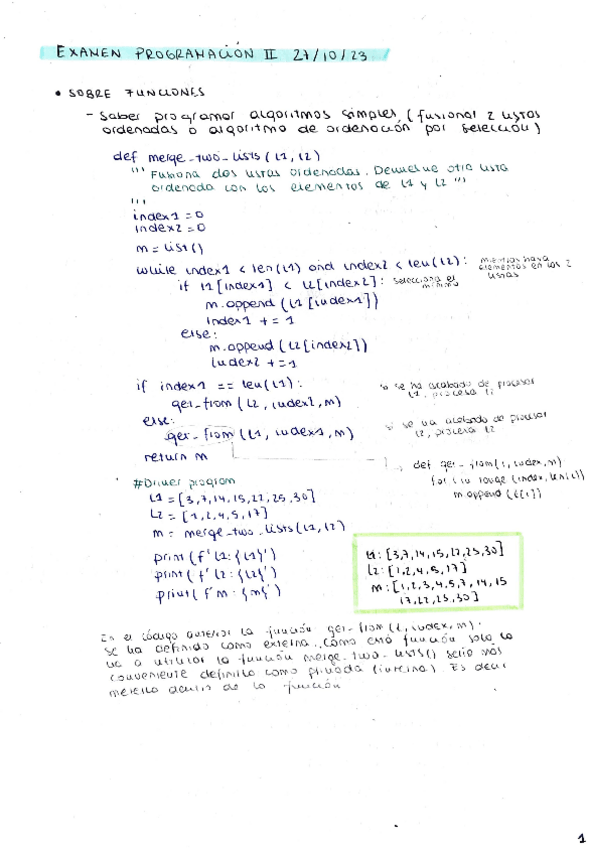 EXAMEN PROGRAMACIÓN II 27/10/23
• SOBRE FUNCIONES
- Saber programar algoritmos simples (fusionar 2 listas
ordenadas o algoritmo de ordenación por selección)
def merge_two_lists(l1, l2)
''' Fusiona dos listas ordenadas. Devuelve otra lista
ordenada con los elementos de l1 y l2 '''
'''
index1 = 0
index2 = 0
m = list()
while index1 < len(l1) and index2 < len(l2): mientras haya
elementos en las 2
listas
if l1[index1] < l2[index2]: selecciona el
mínimo
m.append(l1[index1])
index1 += 1
else:
m.append(l2[index2])
index2 += 1
if index1 == len(l1): si se ha acabado de procesar
l1, procesa l2
get_from(l2, index2, m)
else: si se ha acabado de procesar
l2, procesa l2
get_from(l1, index1, m)
return m
def get_from(l, index, m)
for i in range(index, len(l))
m.append(l[i])
#Driver program
L1 = [3,7,14,15,22,25,30]
L2 = [1,2,4,5,17]
m = merge_two_lists(l1,l2)
print(f'L1:{L1}')
print(f'L2:{L2}')
print(f'm:{m}')
L1:[3,7,14,15,22,25,30]
L2:[1,2,4,5,17]
m:[1,2,3,4,5,7,14,15
17,22,25,30]
En el código anterior la función get_from(l, index, m):
se ha definido como externa. Como esta función solo la
va a utilizar la función merge_two_lists() sería más
conveniente definirla como privada (interna). Es decir
meterla dentro de la función
1